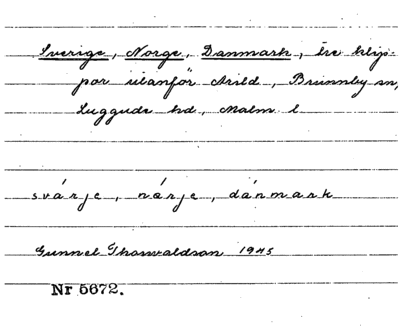 Sverige, Norge, Danmark, tre klip-
por utanför Arild, Brunnby sn,
Luggude hd, Malm l
svárje, nárje, dánmark
Gunnel Thorvaldson 1945
Nr 5672.